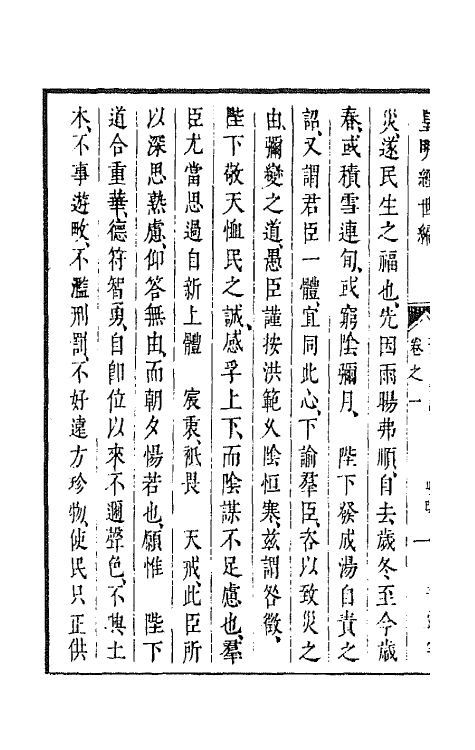 皇明經世編
卷之一
災、遂民生之福也、先因雨暘弗順、自去歲冬至今歲
春、或積雪連旬、或窮陰彌月、 陛下發成湯自責之
詔、又謂君臣一體、宜同此心、下諭羣臣、咨以致災之
由、彌變之道、愚臣謹按洪範久陰恒寒、茲謂咎徵、
陛下敬天恤民之誠、感孚上下、而陰謀不足慮也、羣
臣尤當思過自新上體 宸衷、祇畏 天戒、此臣所
以深思熟慮、仰答無由、而朝夕惕若也、願惟 陛下
道合重華、德符智勇、自卽位以來不邇聲色、不興土
木、不事遊畋、不濫刑罰、不好遠方珍物、使民只正供